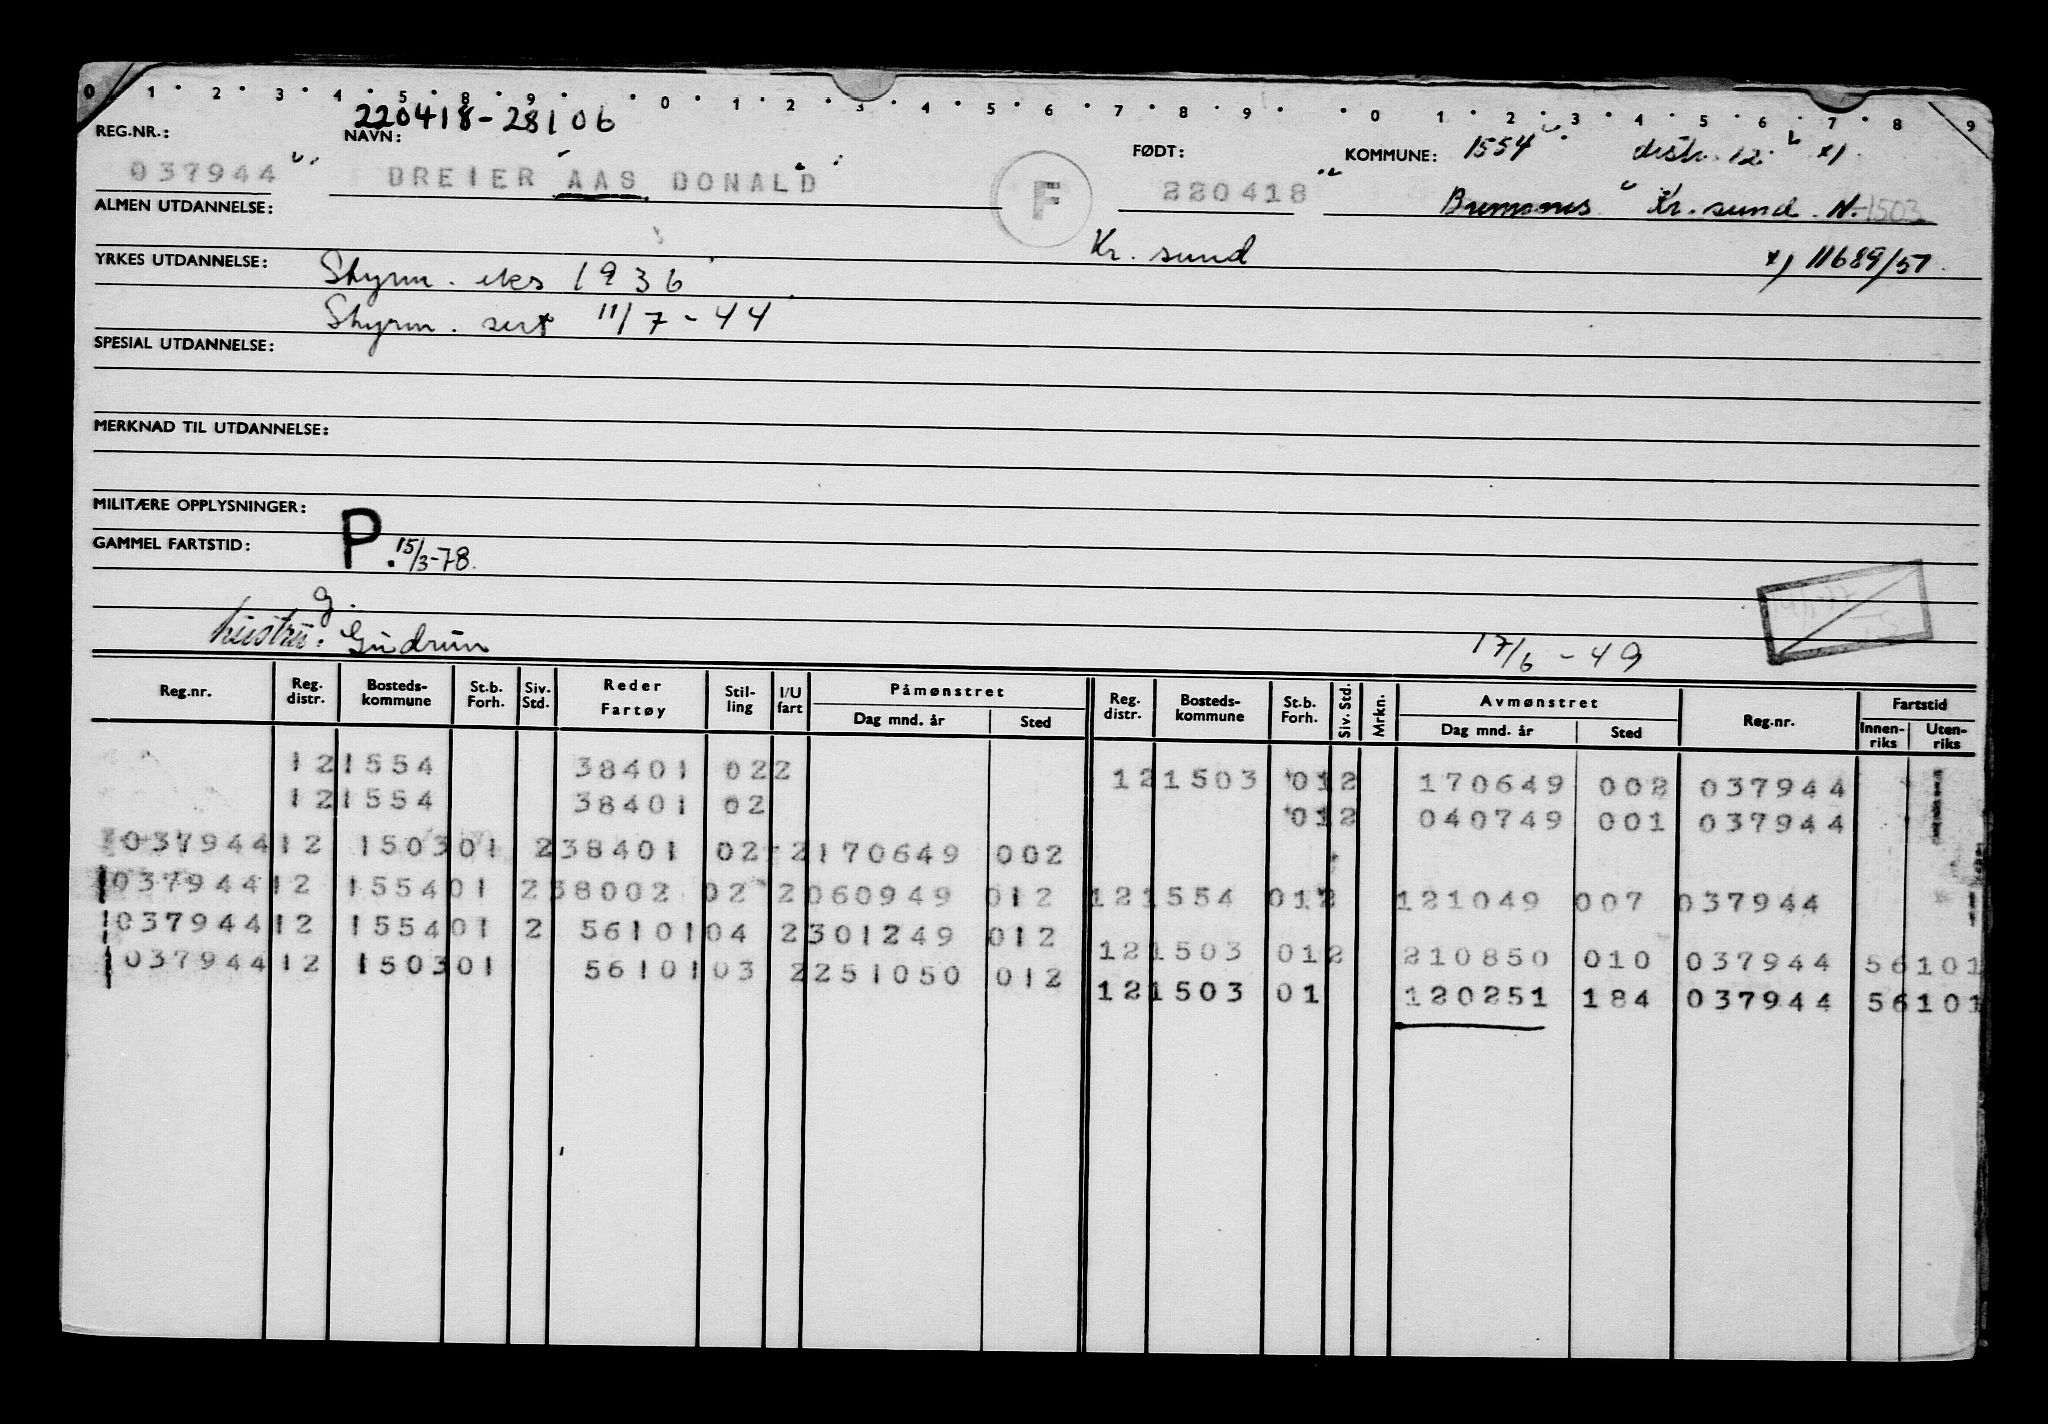 0 1 2 3 4 5 8 9 0 1 2 3 4 5 6 7 8 9 0 1 2 3 4 5 6 7 8 9
220418-28106
REG.NR.: NAVN: FØDT: KOMMUNE: 1554 distr. 12 x)
037944 DREIER AAS DONALD F 220418 Bremsnes Kr. sund. N. 1503
ALMEN UTDANNELSE:
Kr. sund x) 11689/57
YRKES UTDANNELSE: Styrm. eks 1936
Styrm. sert 11/7-44
SPESIAL UTDANNELSE:
MERKNAD TIL UTDANNELSE:
MILITÆRE OPPLYSNINGER:
GAMMEL FARTSTID: P. 15/3-78.
g.
hustru: Gudrun 17/6-49
Reg.nr. Reg. distr. Bosteds-kommune St.b. Forh. Siv. Std. Reder Fartøy Stil-ling I/U fart Påmønstret Dag mnd. år Sted Reg. distr. Bosteds-kommune St.b. Forh. Siv. Std. Mrkn. Avmønstret Dag mnd. år Sted Reg.nr. Fartstid Innen-riks Uten-riks
121554 38401 022 121503 012 170649 002 037944
121554 38401 02 012 040749 001 037944
037944 12 150301 238401 02-2170649 002
037944 12 155401 238002 02 2060949 012 121554 012 121049 007 037944
037944 12 155401 2 5610104 2301249 012 121503 012 210850 010 037944 56101
037944 12 150301 5610103 2251050 012 121503 01 120251 184 037944 56101